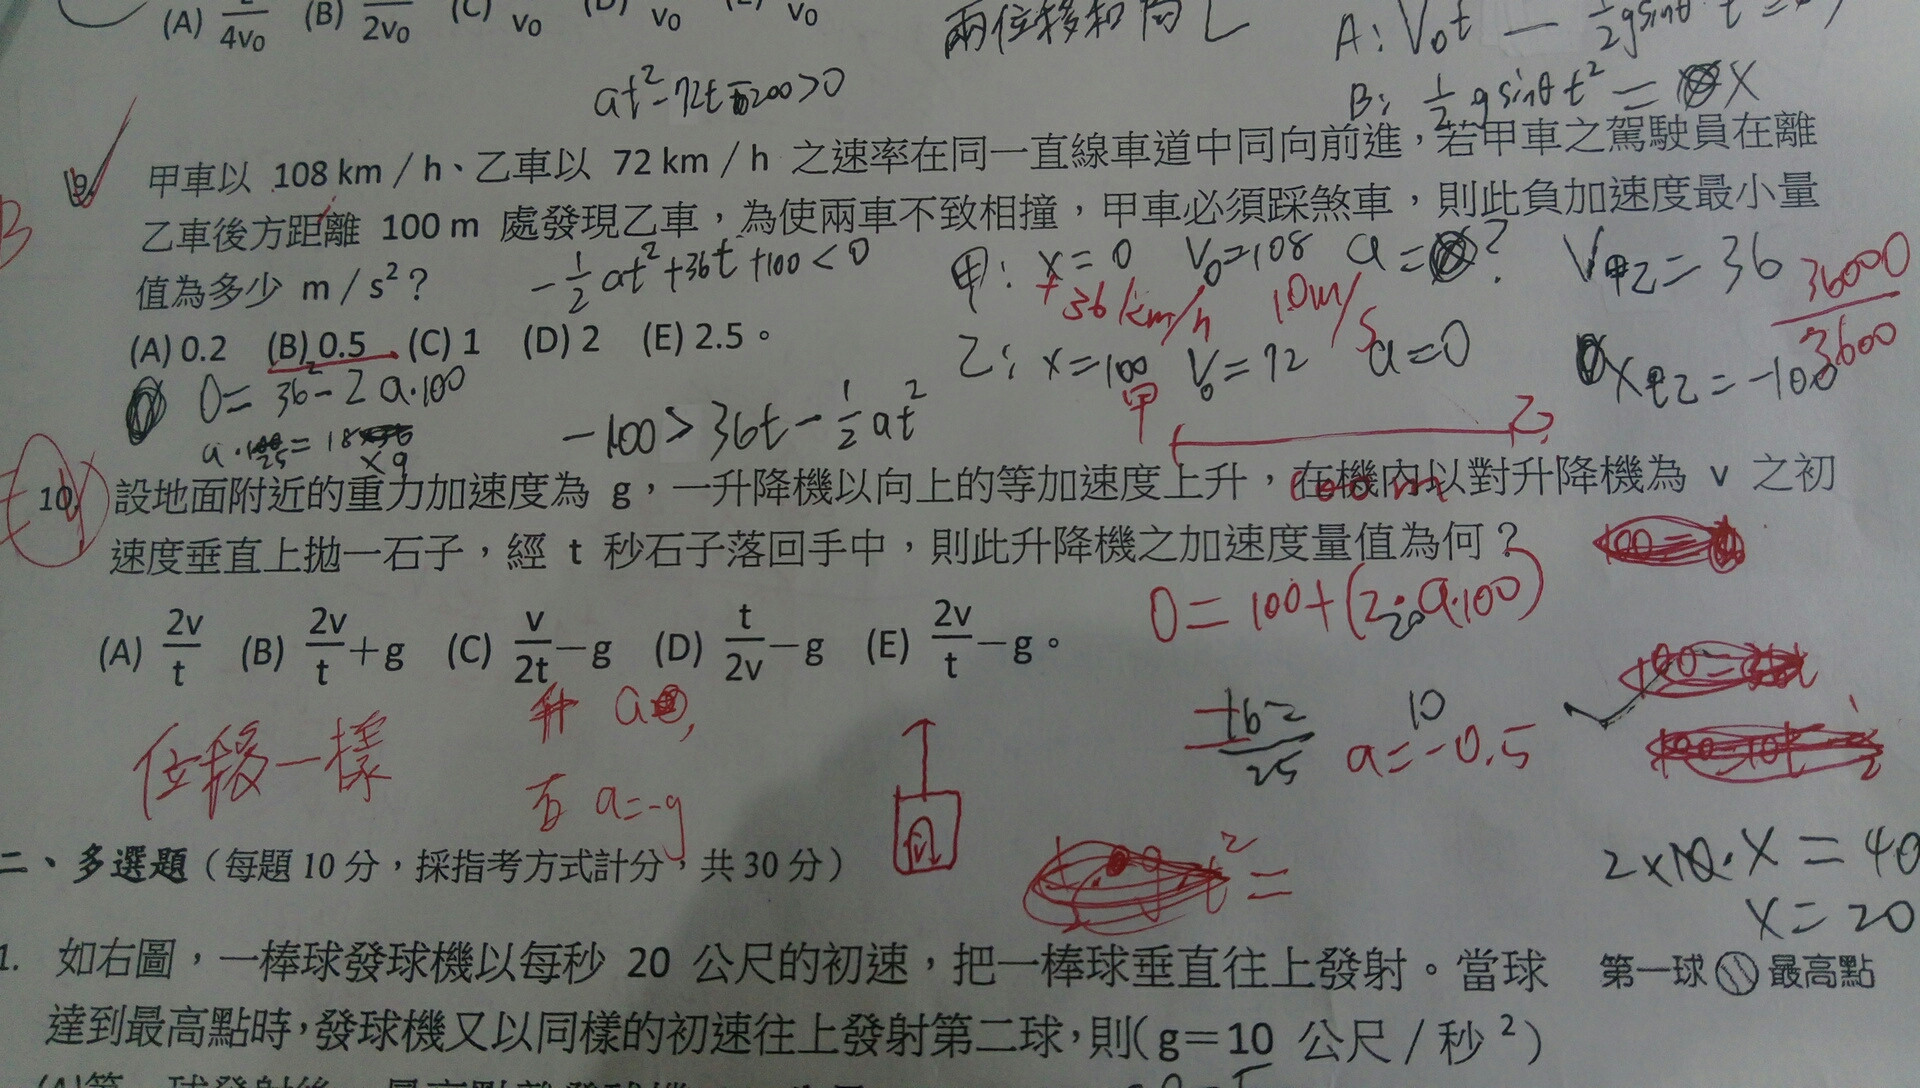 (A) 4v₀ (B) 2v₀ (C) v₀ v₀ v₀
兩位移和為 L
A: V₀t - ½gsinθ
at²-72t 200>0
B: ½gsinθt² = X
9. 甲車以 108 km/h、乙車以 72 km/h 之速率在同一直線車道中同向前進，若甲車之駕駛員在離
B
乙車後方距離 100 m 處發現乙車，為使兩車不致相撞，甲車必須踩煞車，則此負加速度最小量
值為多少 m/s²？
-½at²+36t+100<0
甲: x=0 V₀=108 a=?
V甲乙=36
36000/3600
+36km/h 10m/s
(A) 0.2 (B) 0.5 (C) 1 (D) 2 (E) 2.5。
乙: x=100 V₀=72 a=0
X甲乙=-100
0=36²-2a·100
-100>36t-½at²
甲 乙
100m
10. 設地面附近的重力加速度為 g，一升降機以向上的等加速度上升，在機內以對升降機為 v 之初
速度垂直上拋一石子，經 t 秒石子落回手中，則此升降機之加速度量值為何？
0=100+(2·a·100)
(A) 2v/t (B) 2v/t+g (C) v/2t-g (D) t/2v-g (E) 2v/t-g。
升 a
位移一樣
石 a=-g
25
10
a=-0.5
t²=
二、多選題（每題 10 分，採指考方式計分，共 30 分）
2×10·X=40
X=20
1. 如右圖，一棒球發球機以每秒 20 公尺的初速，把一棒球垂直往上發射。當球
第一球 最高點
達到最高點時，發球機又以同樣的初速往上發射第二球，則(g＝10 公尺/秒²)